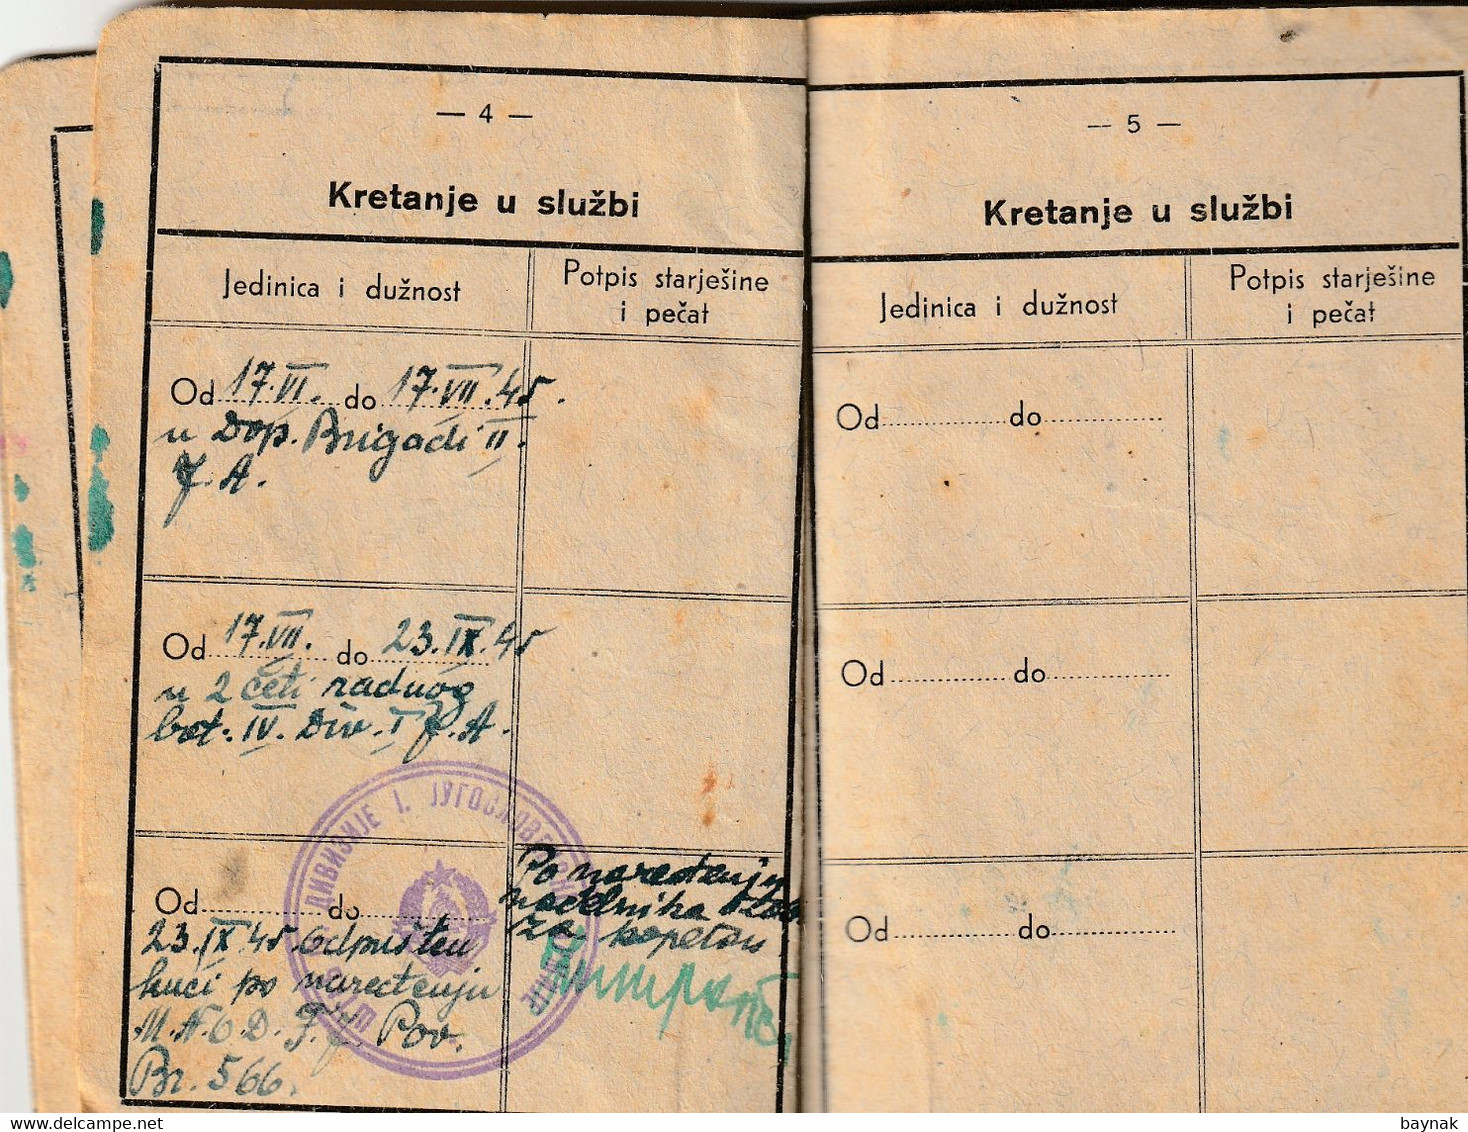 — 4 —
Kretanje u službi
Jedinica i dužnost
Potpis starješine
i pečat
Od 17.VI. do 17.VII.45.
u Dop. Brigadi II.
J.A.
Od 17.VII. do 23.IX.45
u 2 četi radnog
bat. IV. Div. I J.A.
Od do
23.IX 45. Odpušten
kući po naređenju
M.N.O.D.F.J. Pov.
Br. 566.
ДИВИЗИЈЕ I. ЈУГОСЛОВЕНСКЕ
Po naređenju
načelnika
za kapetan
— 5 —
Kretanje u službi
Jedinica i dužnost
Potpis starješine
i pečat
Od do
Od do
Od do
baynak